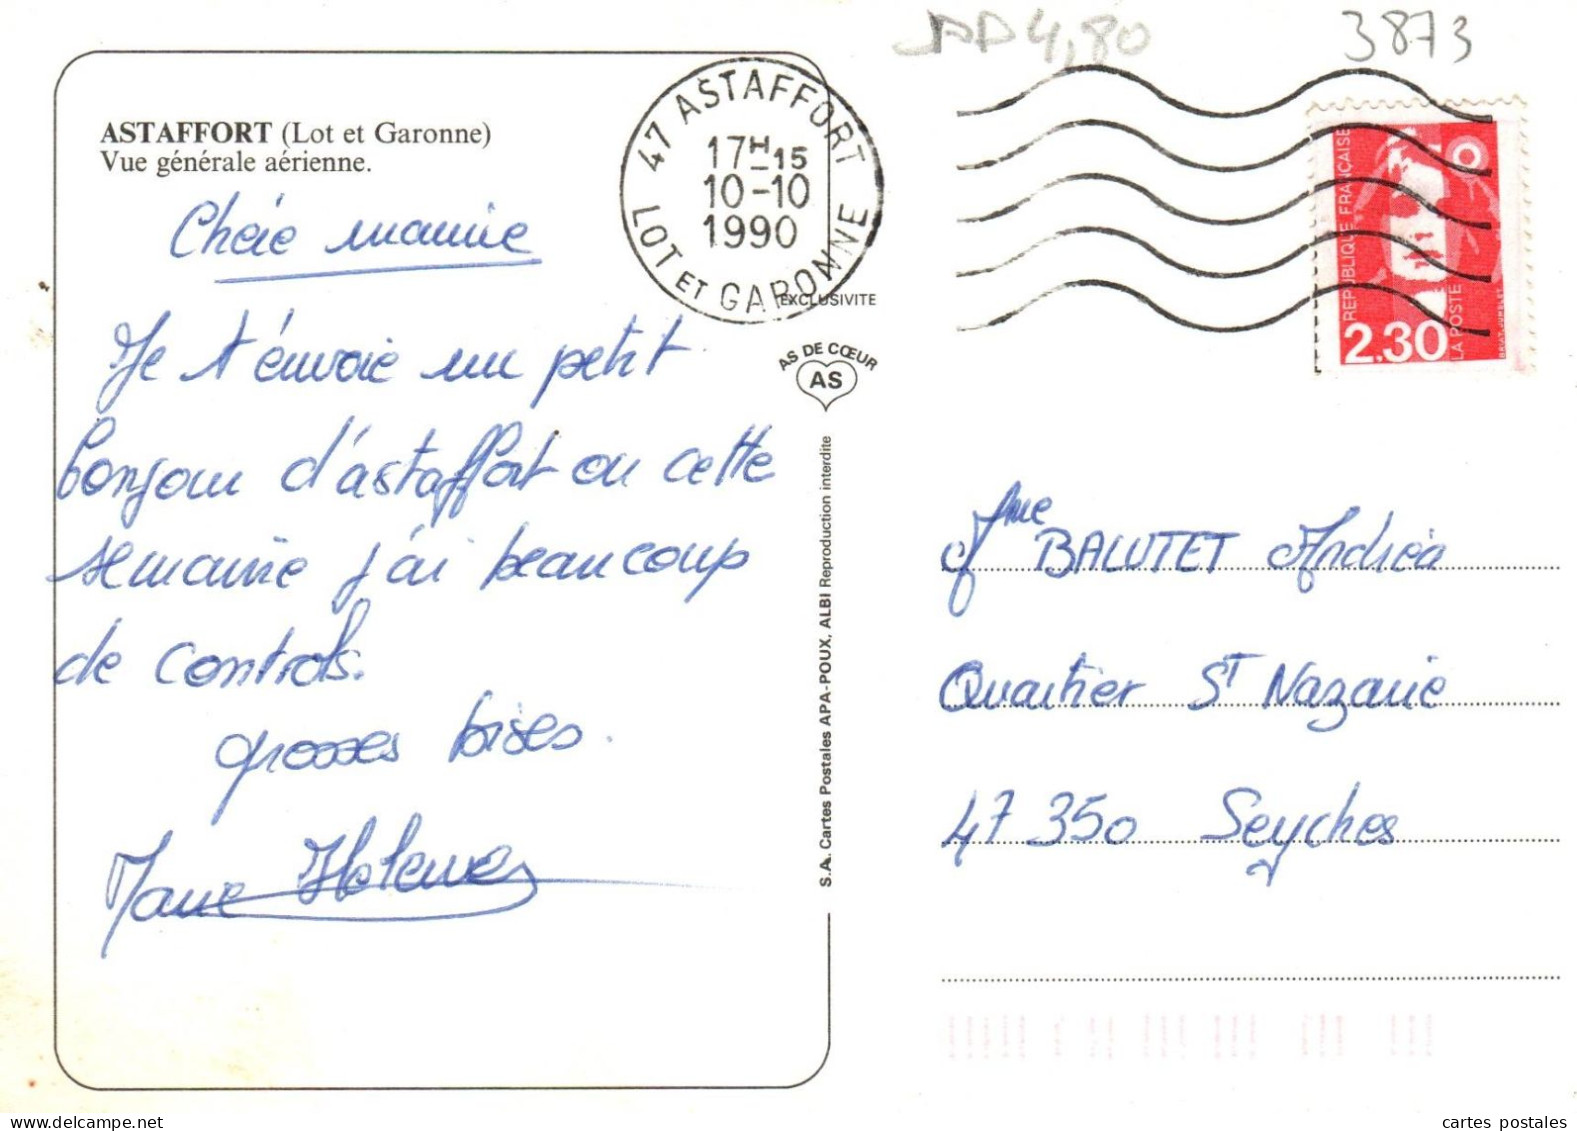 3873
4,80
ASTAFFORT (Lot et Garonne)
Vue générale aérienne.
47 ASTAFFORT
17H-15
10-10
1990
LOT ET GARONNE
REPUBLIQUE FRANÇAISE
2,30
LA POSTE
Chérie mamie
Je t'envoie un petit
bonjour d'astaffort ou cette
semaine j'ai beaucoup
de controls.
grosses bises.
Marie Helene
EXCLUSIVITE
AS DE CŒUR
AS
S.A. Cartes Postales APA-POUX, ALBI Reproduction interdite
Mme BALUTET Andréa
Quartier ST Nazaire
47 350 Seyches
cartes postales